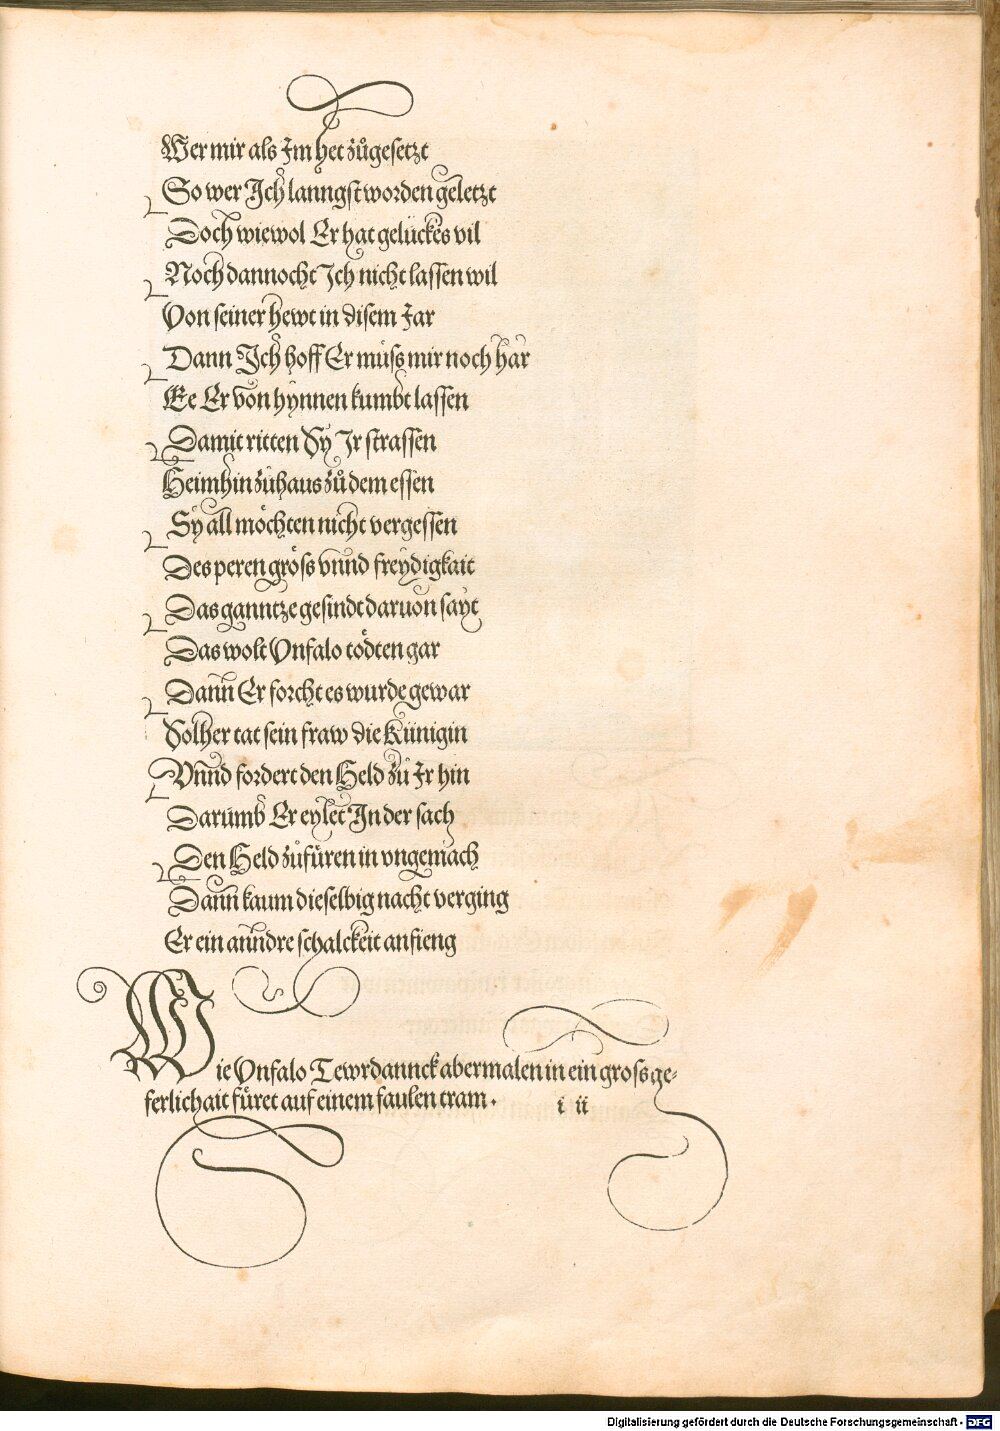 Wer mir als Im het zůgesetzt
So wer Ich lanngst worden geletzt
Doch wiewol Er hat gelückes vil
Noch dannocht Ich nicht lassen wil
Von seiner hewt in disem Jar
Dann Ich hoff Er můss mir noch har
Ee Er von hynnen kumbt lassen
Damit ritten Sy Ir strassen
Heimhin zůhaus zů dem essen
Sy all möchten nicht vergessen
Des peren gröss vnnd freydigkait
Das ganntze gesindt daruon sayt
Das wolt Vnfalo tödten gar
Dann Er forcht es wurde gewar
Solher tat sein fraw die Künigin
Vnnd fordert den Held zů Ir hin
Darumb Er eylet In der sach
Den Held zůfüren in vngemach
Dann kaum dieselbig nacht verging
Er ein anndre schalckeit anfieng
Wie Vnfalo Tewrdannck abermalen in ein gross ge-
ferlichait füret auf einem faulen tram . i ii
Digitalisierung gefördert durch die Deutsche Forschungsgemeinschaft - DFG